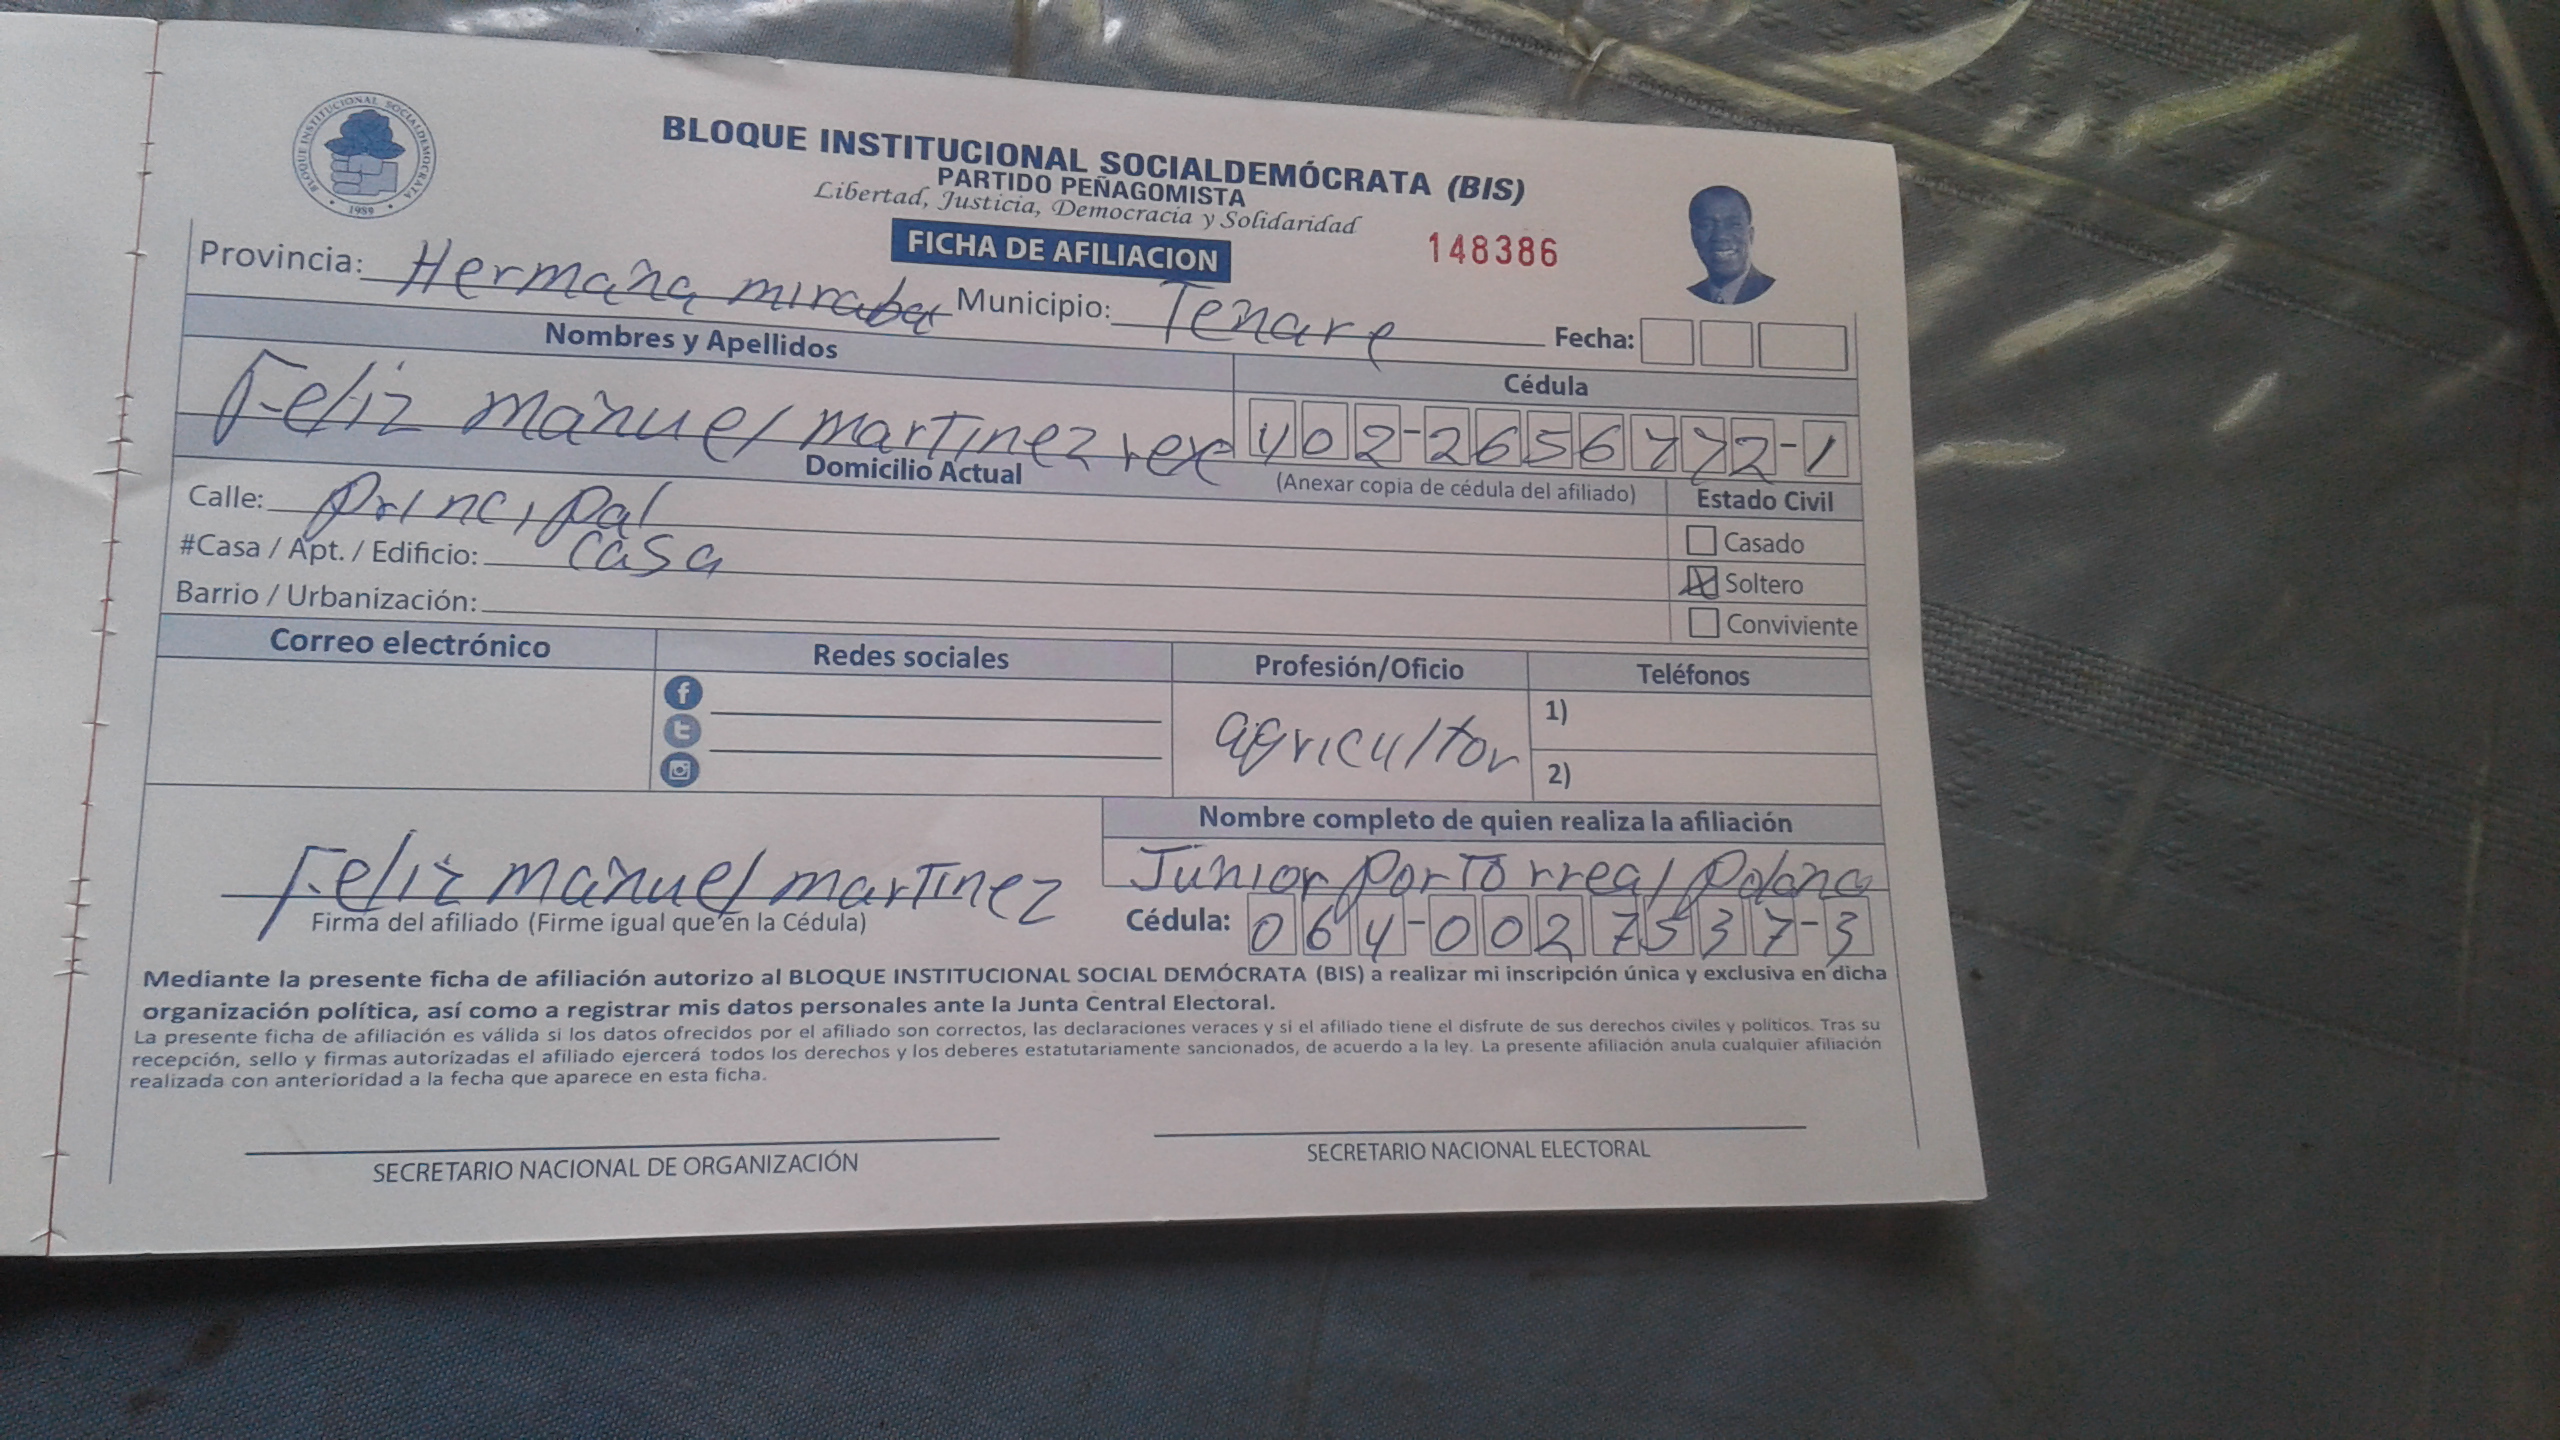 BLOQUE INSTITUCIONAL SOCIALDEMÓCRATA
1989
BLOQUE INSTITUCIONAL SOCIALDEMÓCRATA (BIS)
PARTIDO PEÑAGOMISTA
Libertad, Justicia, Democracia y Solidaridad
FICHA DE AFILIACION
148386
Provincia: Hermana mirabal Municipio: Tenare Fecha:
Nombres y Apellidos
Cédula
Feliz manuel martinez 402-2656772-1
Domicilio Actual
(Anexar copia de cédula del afiliado)
Estado Civil
Calle: principal
Casado
#Casa / Apt. / Edificio: casa
Soltero
Barrio / Urbanización:
Conviviente
Correo electrónico Redes sociales Profesión/Oficio Teléfonos
f
t
agricultor
1)
2)
Nombre completo de quien realiza la afiliación
Junior portorreal polanco
Feliz manuel martinez
Firma del afiliado (Firme igual que en la Cédula)
Cédula: 064-0027537-3
Mediante la presente ficha de afiliación autorizo al BLOQUE INSTITUCIONAL SOCIAL DEMÓCRATA (BIS) a realizar mi inscripción única y exclusiva en dicha
organización política, así como a registrar mis datos personales ante la Junta Central Electoral.
La presente ficha de afiliación es válida si los datos ofrecidos por el afiliado son correctos, las declaraciones veraces y si el afiliado tiene el disfrute de sus derechos civiles y políticos. Tras su
recepción, sello y firmas autorizadas el afiliado ejercerá todos los derechos y los deberes estatutariamente sancionados, de acuerdo a la ley. La presente afiliación anula cualquier afiliación
realizada con anterioridad a la fecha que aparece en esta ficha.
SECRETARIO NACIONAL DE ORGANIZACIÓN
SECRETARIO NACIONAL ELECTORAL